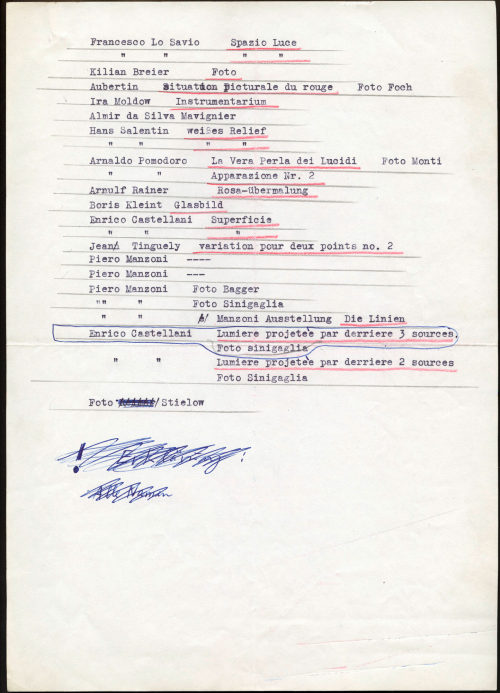 Francesco Lo Savio Spazio Luce
" " " "
Kilian Breier Foto
Aubertin situation picturale du rouge Foto Foch
Ira Moldow Instrumentarium
Almir da Silva Mavignier
Hans Salentin weißes Relief
" " " "
Arnaldo Pomodoro La Vera Perla dei Lucidi Foto Monti
" " Apparazione Nr. 2
Arnulf Rainer Rosa-übermalung
Boris Kleint Glasbild
Enrico Castellani Superficie
" " "
Jean Tinguely variation pour deux points no. 2
Piero Manzoni ----
Piero Manzoni ---
Piero Manzoni Foto Bagger
"" " Foto Sinigaglia
" " Manzoni Ausstellung Die Linien
Enrico Castellani Lumiere projeteè par derriere 3 sources.
Foto sinigaglia
" " Lumiere projeteè par derriere 2 sources
Foto Sinigaglia
Foto /Stielow